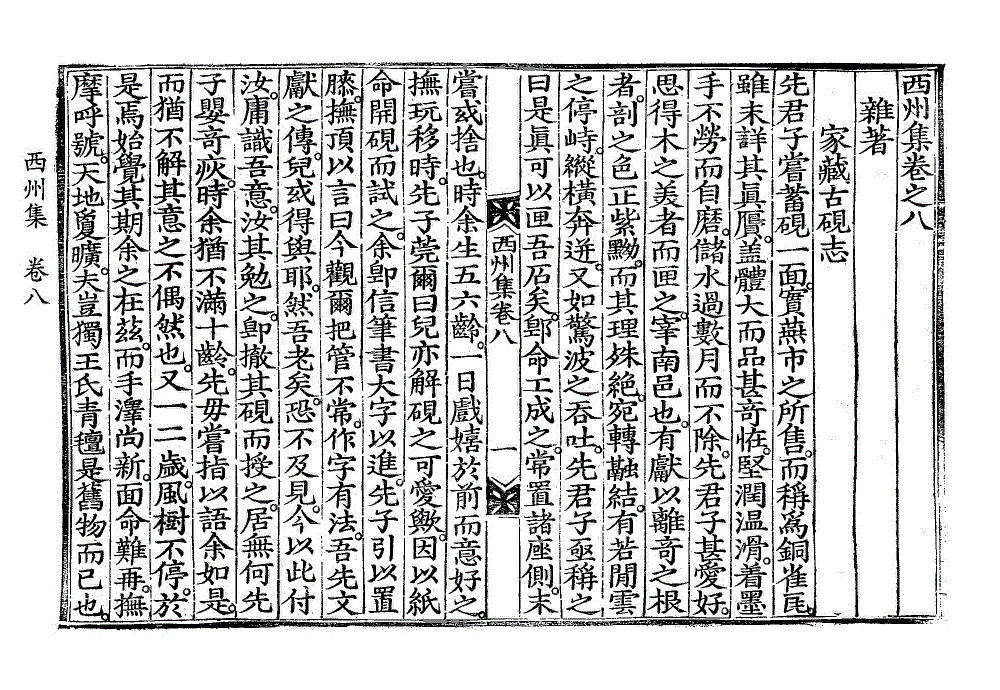 西州集卷之八
雜著
家藏古硯志
先君子嘗蓄硯一面。實燕市之所售。而稱爲銅雀瓦。
雖未詳其眞贋。盖體大而品甚奇恠。堅潤温滑。着墨
手不勞而自磨。儲水過數月而不除。先君子甚愛好。
思得木之美者而匣之。宰南邑也。有獻以離奇之根
者。剖之色正紫黝。而其理殊絶。宛轉融結。有若閒雲
之停峙。縱橫奔迸。又如驚波之呑吐。先君子亟稱之
曰是眞可以匣吾石矣。卽命工成之。常置諸座側。未
西州集卷八
一
嘗或捨也。時余生五六齡。一日戱嬉於前而意好之。
撫玩移時。先子莞爾曰兒亦解硯之可愛歟。因以紙
命開硯而試之。余卽信筆書大字以進。先子引以置
膝。撫頂以言曰今觀爾把管不常。作字有法。吾先文
獻之傳。兒或得與耶。然吾老矣。恐不及見。今以此付
汝。庸識吾意。汝其勉之。卽撤其硯而授之。居無何先
子嬰奇疾。時余猶不滿十齡。先母嘗指以語余如是。
而猶不解其意之不偶然也。又一二歲。風樹不停。於
是焉始覺其期余之在玆。而手澤尙新。面命難再。撫
摩呼號。天地敻曠。夫豈獨王氏靑氊是舊物而已也。
西州集 卷八